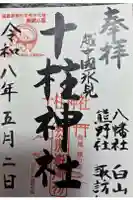 奉拝
八幡社 白山
熊野社 諏訪
越之國氷見
十柱神社
令和八年五月二日